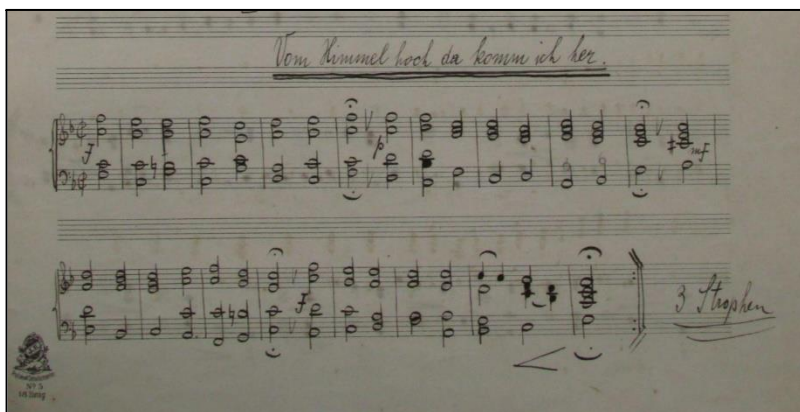 Vom Himmel hoch da komm ich her.
f
p
mf
f
3 Strophen
No 3